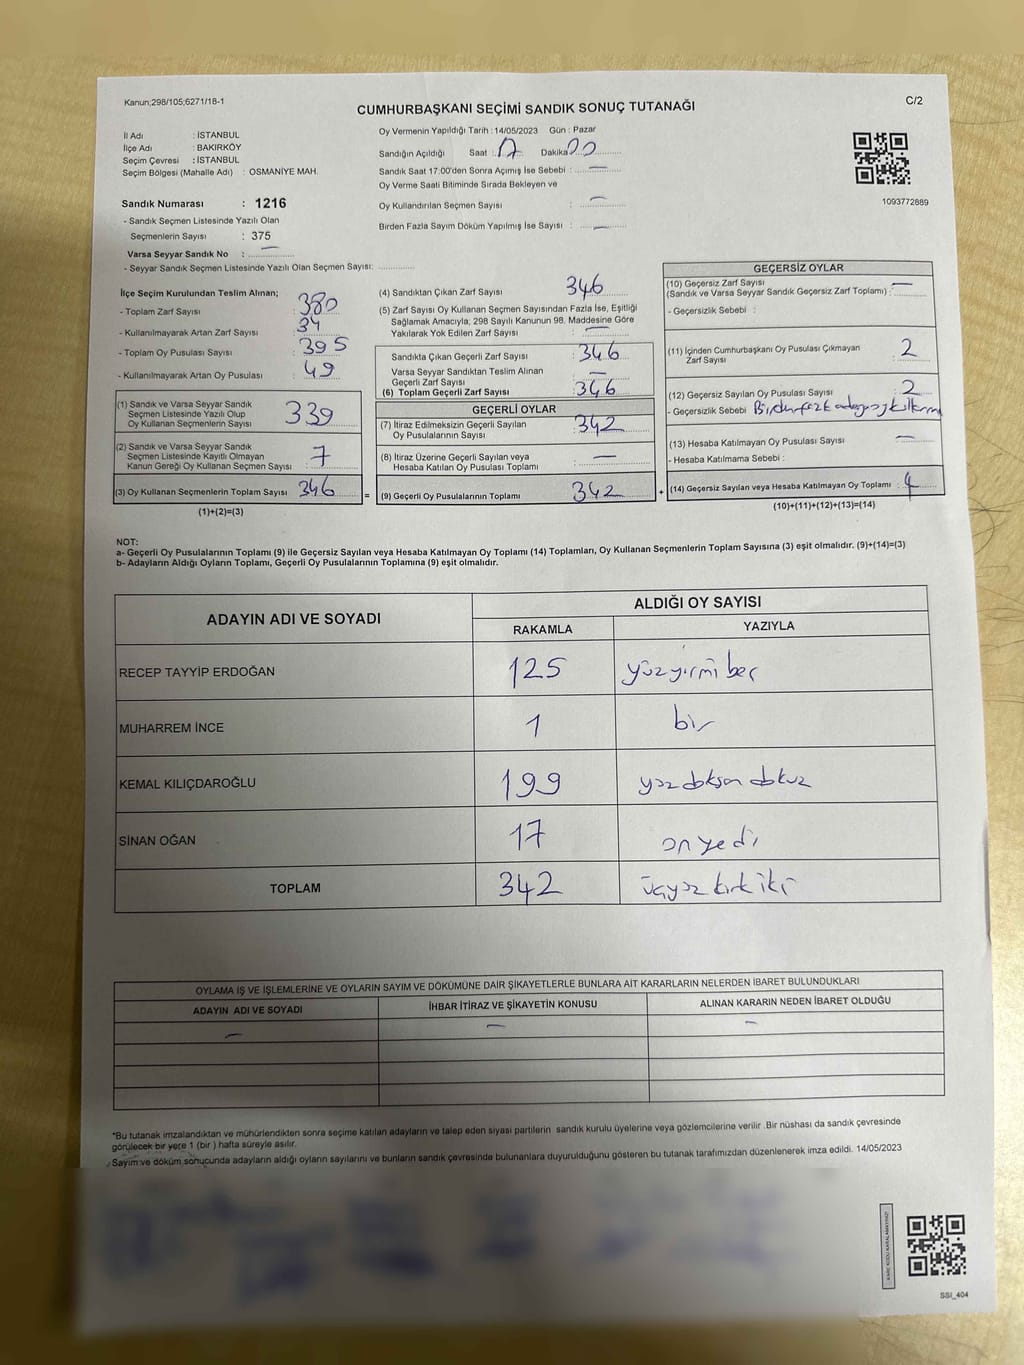 Kanun;298/105;6271/18-1
C/2
CUMHURBAŞKANI SEÇİMİ SANDIK SONUÇ TUTANAĞI
İl Adı : İSTANBUL
İlçe Adı : BAKIRKÖY
Seçim Çevresi : İSTANBUL
Seçim Bölgesi (Mahalle Adı) : OSMANİYE MAH.
Sandık Numarası : 1216
- Sandık Seçmen Listesinde Yazılı Olan
Seçmenlerin Sayısı : 375
Varsa Seyyar Sandık No : —
- Seyyar Sandık Seçmen Listesinde Yazılı Olan Seçmen Sayısı:
Oy Vermenin Yapıldığı Tarih : 14/05/2023 Gün : Pazar
Sandığın Açıldığı Saat : 17 Dakika 00
Sandık Saat 17:00'den Sonra Açımış İse Sebebi : —
Oy Verme Saati Bitiminde Sırada Bekleyen ve
Oy Kullandırılan Seçmen Sayısı : —
Birden Fazla Sayım Döküm Yapılmış İse Sayısı : —
1093772889
İlçe Seçim Kurulundan Teslim Alınan;
- Toplam Zarf Sayısı : 380
- Kullanılmayarak Artan Zarf Sayısı : 34
- Toplam Oy Pusulası Sayısı : 395
- Kullanılmayarak Artan Oy Pusulası : 49
(1) Sandık ve Varsa Seyyar Sandık
Seçmen Listesinde Yazılı Olup
Oy Kullanan Seçmenlerin Sayısı : 339
(2) Sandık ve Varsa Seyyar Sandık
Seçmen Listesinde Kayıtlı Olmayan
Kanun Gereği Oy Kullanan Seçmen Sayısı : 7
(3) Oy Kullanan Seçmenlerin Toplam Sayısı : 346 =
(1)+(2)=(3)
(4) Sandıktan Çıkan Zarf Sayısı : 346
(5) Zarf Sayısı Oy Kullanan Seçmen Sayısından Fazla İse, Eşitliği
Sağlamak Amacıyla; 298 Sayılı Kanunun 98. Maddesine Göre
Yakılarak Yok Edilen Zarf Sayısı : —
Sandıkta Çıkan Geçerli Zarf Sayısı : 346
Varsa Seyyar Sandıktan Teslim Alınan
Geçerli Zarf Sayısı : —
(6) Toplam Geçerli Zarf Sayısı : 346
GEÇERLİ OYLAR
(7) İtiraz Edilmeksizin Geçerli Sayılan
Oy Pusulalarının Sayısı : 342
(8) İtiraz Üzerine Geçerli Sayılan veya
Hesaba Katılan Oy Pusulası Toplamı : —
(9) Geçerli Oy Pusulalarının Toplamı : 342 +
GEÇERSİZ OYLAR
(10) Geçersiz Zarf Sayısı
(Sandık ve Varsa Seyyar Sandık Geçersiz Zarf Toplamı) : —
- Geçersizlik Sebebi :
(11) İçinden Cumhurbaşkanı Oy Pusulası Çıkmayan
Zarf Sayısı : 2
(12) Geçersiz Sayılan Oy Pusulası Sayısı : 2
- Geçersizlik Sebebi
(13) Hesaba Katılmayan Oy Pusulası Sayısı : —
- Hesaba Katılmama Sebebi :
(14) Geçersiz Sayılan veya Hesaba Katılmayan Oy Toplamı : 4
(10)+(11)+(12)+(13)=(14)
NOT:
a- Geçerli Oy Pusulalarının Toplamı (9) ile Geçersiz Sayılan veya Hesaba Katılmayan Oy Toplamı (14) Toplamları, Oy Kullanan Seçmenlerin Toplam Sayısına (3) eşit olmalıdır. (9)+(14)=(3)
b- Adayların Aldığı Oyların Toplamı, Geçerli Oy Pusulalarının Toplamına (9) eşit olmalıdır.
ADAYIN ADI VE SOYADI
ALDIĞI OY SAYISI
RAKAMLA YAZIYLA
RECEP TAYYİP ERDOĞAN 125 yüz yirmi beş
MUHARREM İNCE 1 bir
KEMAL KILIÇDAROĞLU 199 yüz doksan dokuz
SİNAN OĞAN 17 on yedi
TOPLAM 342 üçyüz kırk iki
OYLAMA İŞ VE İŞLEMLERİNE VE OYLARIN SAYIM VE DÖKÜMÜNE DAİR ŞİKAYETLERLE BUNLARA AİT KARARLARIN NELERDEN İBARET BULUNDUKLARI
ADAYIN ADI VE SOYADI İHBAR İTİRAZ VE ŞİKAYETİN KONUSU ALINAN KARARIN NEDEN İBARET OLDUĞU
— — —
*Bu tutanak imzalandıktan ve mühürlendikten sonra seçime katılan adayların ve talep eden siyasi partilerin sandık kurulu üyelerine veya gözlemcilerine verilir .Bir nüshası da sandık çevresinde
görülecek bir yere 1 (bir ) hafta süreyle asılır.
Sayım ve döküm sonucunda adayların aldığı oyların sayılarını ve bunların sandık çevresinde bulunanlara duyurulduğunu gösteren bu tutanak tarafımızdan düzenlenerek imza edildi. 14/05/2023
KARE KODU KARALAMAYINIZ!
SSI_404